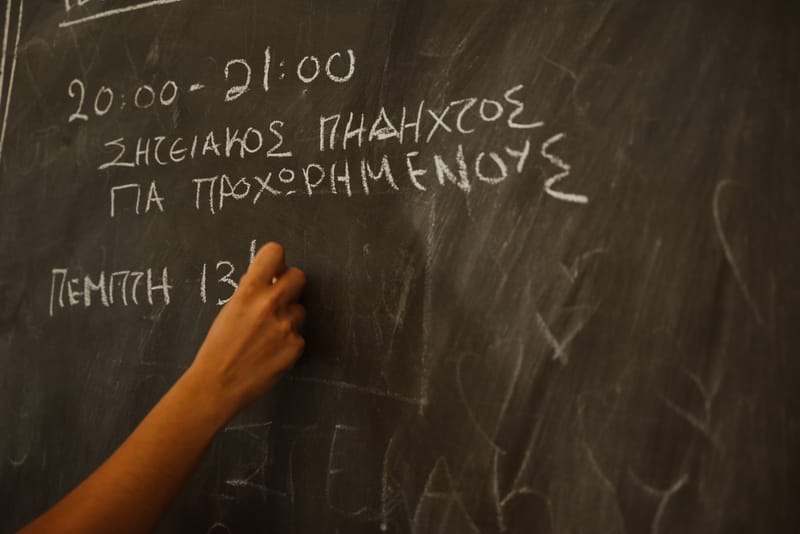 20:00 - 21:00
ΣΗΤΕΙΑΚΟΣ ΠΗΔΗΧΤΟΣ
ΓΙΑ ΠΡΟΧΩΡΗΜΕΝΟΥΣ
ΠΕΜΠΤΗ 13/